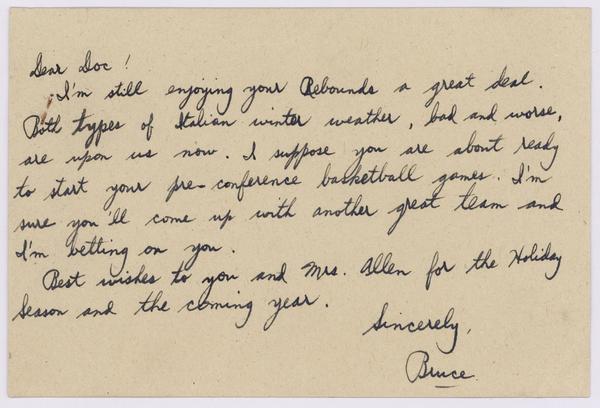 Dear Doc!
I'm still enjoying your Rebounds a great deal.
Both types of Italian winter weather, bad and worse,
are upon us now. I suppose you are about ready
to start your pre-conference basketball games. I'm
sure you'll come up with another great team and
I'm betting on you.
Best wishes to you and Mrs. Allen for the Holiday
Season and the coming year.
Sincerely,
Bruce